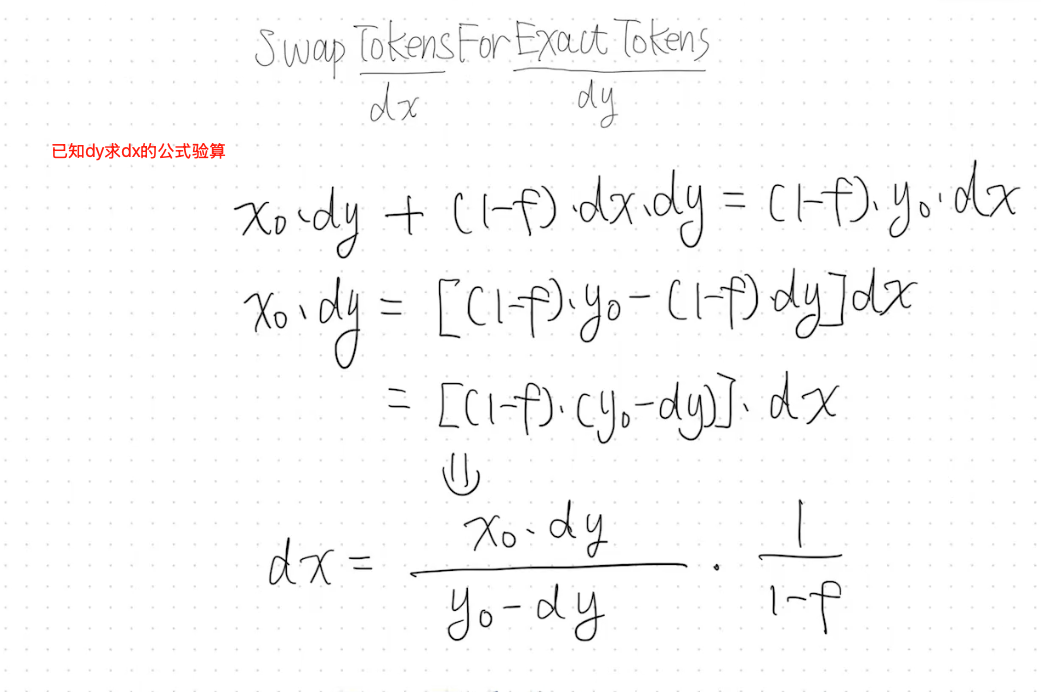 Swap Tokens For Exact Tokens
dx dy
已知dy求dx的公式验算
x₀·dy + (1-f)·dx·dy = (1-f)·y₀·dx
x₀·dy = [(1-f)·y₀-(1-f)·dy]dx
= [(1-f)·(y₀-dy)]·dx
⇓
x₀·dy 1
dx = ——— · ———
y₀-dy 1-f